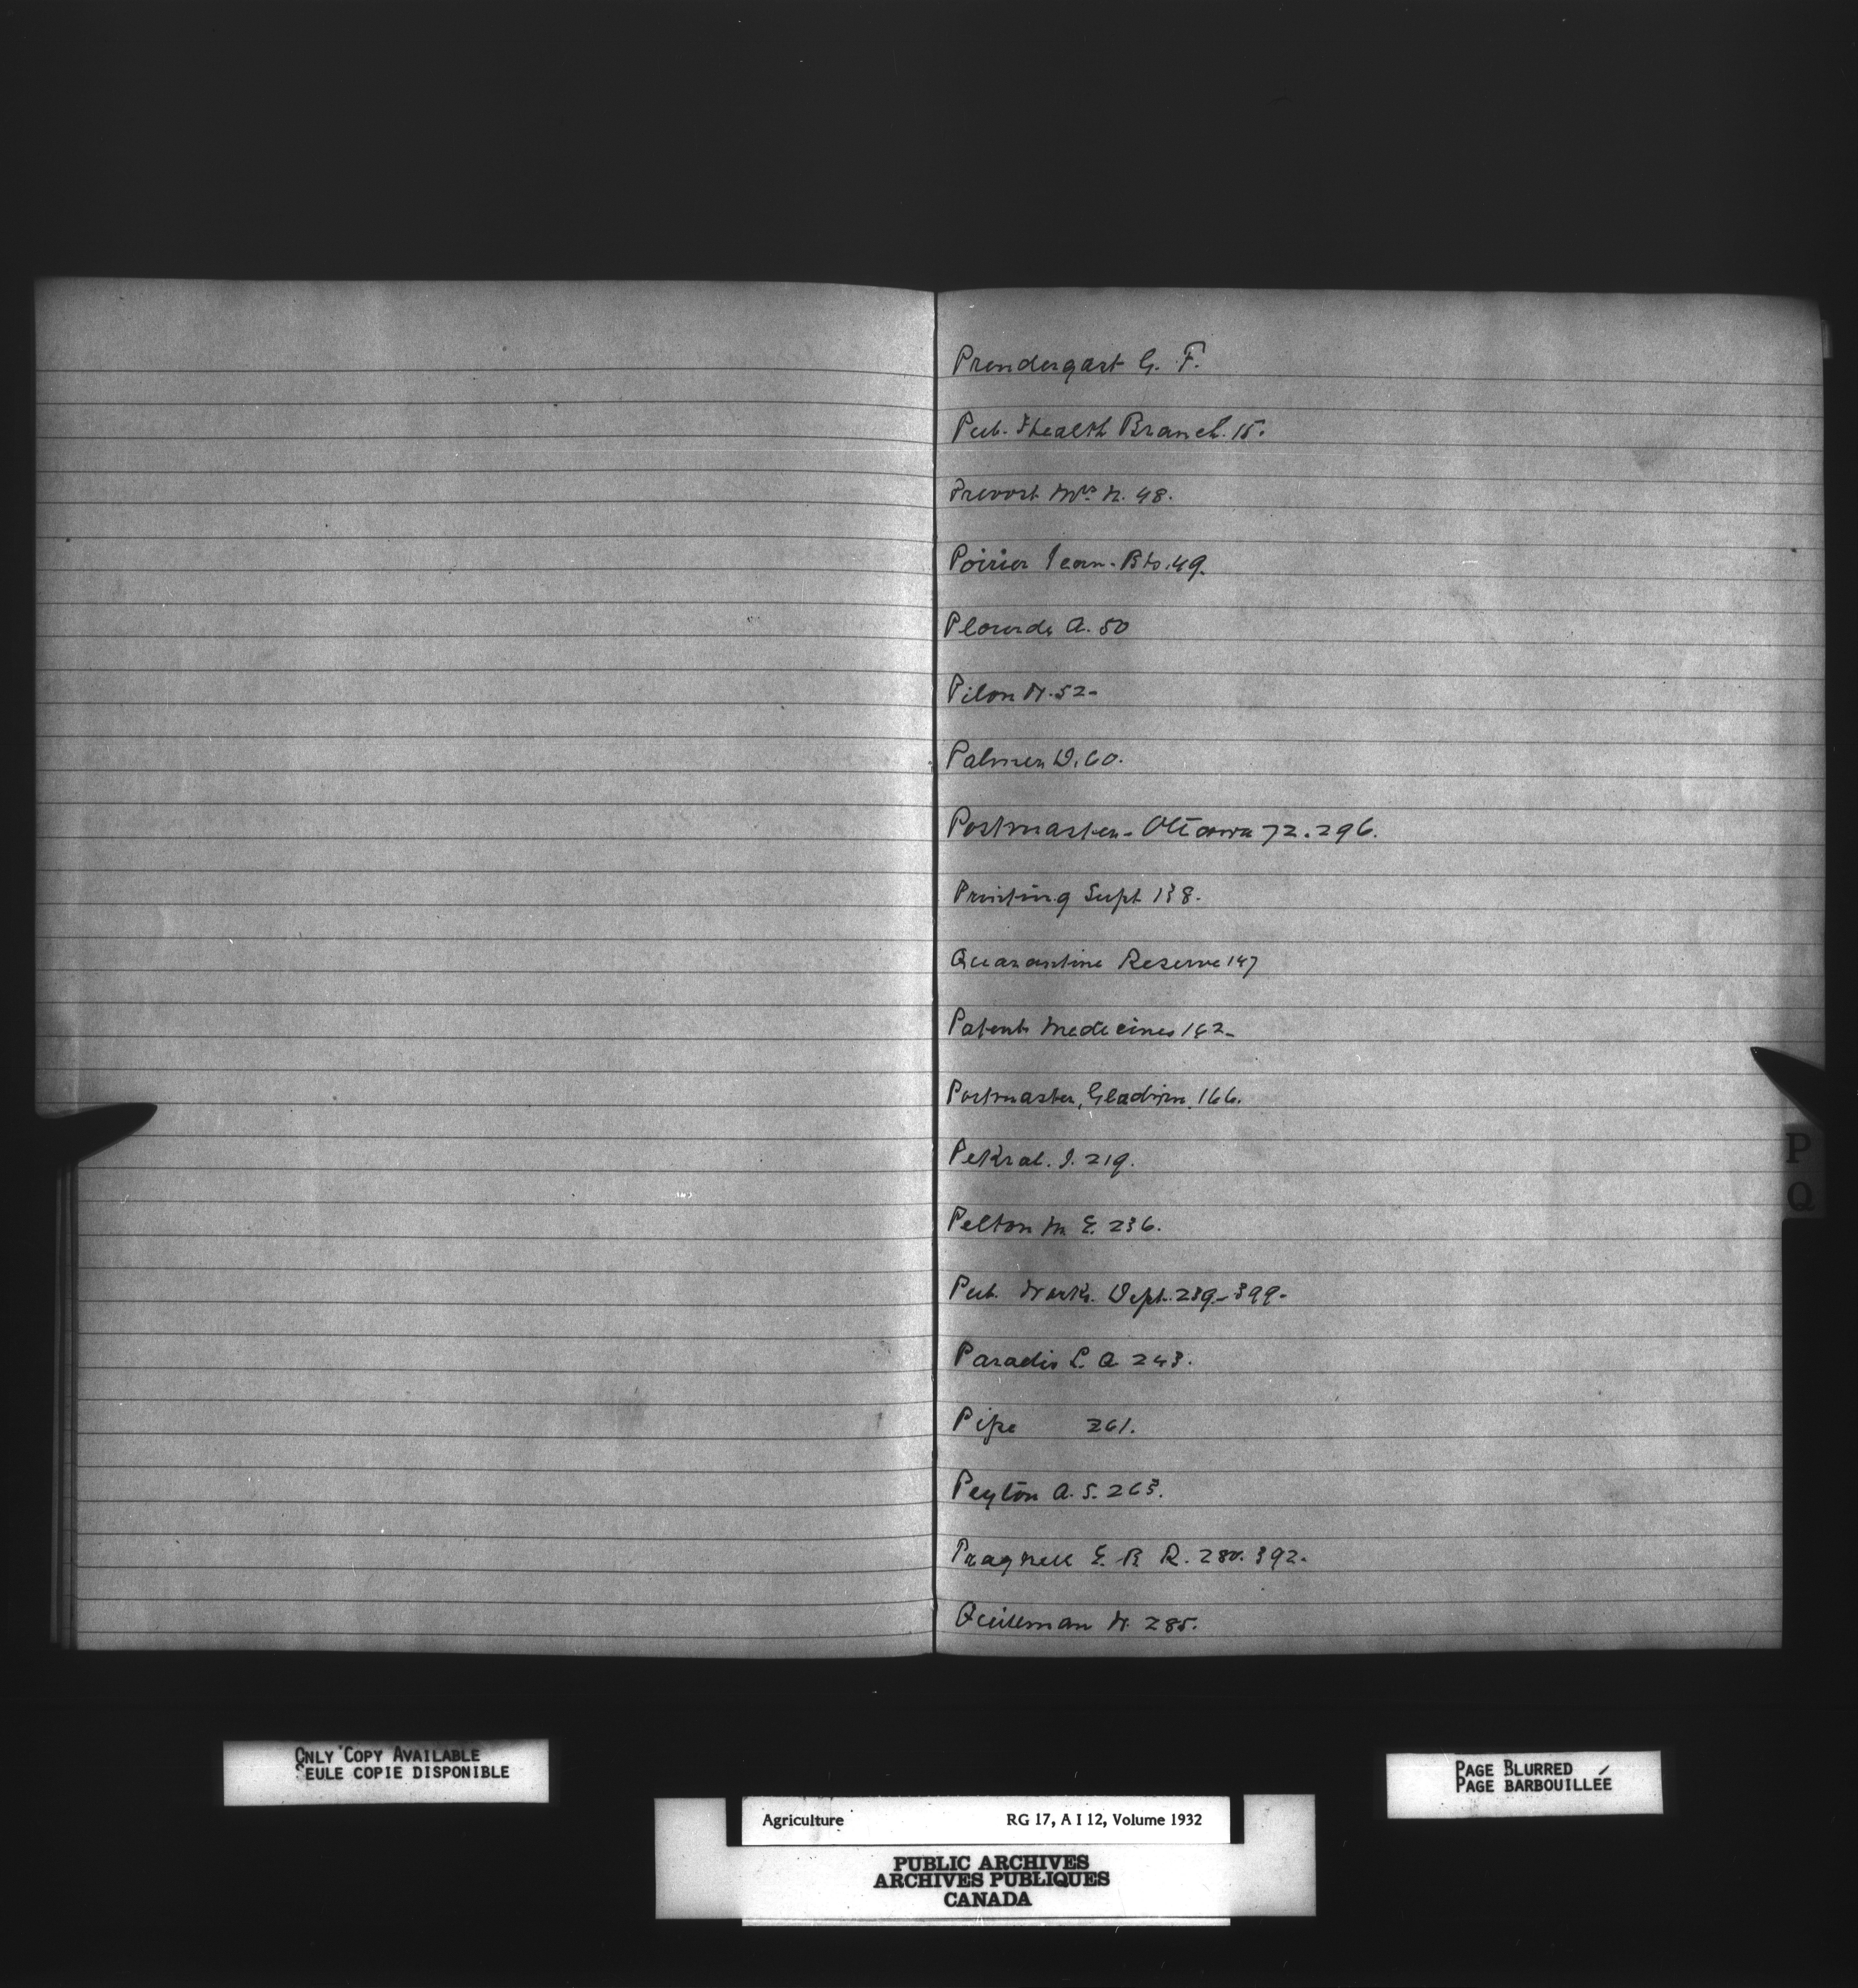 Prendergast G. F.
Pub. Health Branch. 15.
Prevost Mrs. N. 48.
Poirier Jean-Bte. 49.
Plourde A. 50
Pilon N. 52-
Palmer D. 60.
Postmaster - Ottawa 72. 296.
Printing Supt 138.
Quarantine Reserve 147
Patent Medicines 162-
Postmaster, Gladwin. 166.
Pekral. J. 219.
Pelton M. E. 236.
Pub. Works. Dept. 239-399-
Paradis L. A. 243.
Pipe 261.
Peyton A. S. 263.
Pragnell E. B R. 280. 392.
Quillman W. 285.
P
Q
ONLY COPY AVAILABLE
SEULE COPIE DISPONIBLE
PAGE BLURRED
PAGE BARBOUILLÉE
Agriculture RG 17, A I 12, Volume 1932
PUBLIC ARCHIVES
ARCHIVES PUBLIQUES
CANADA